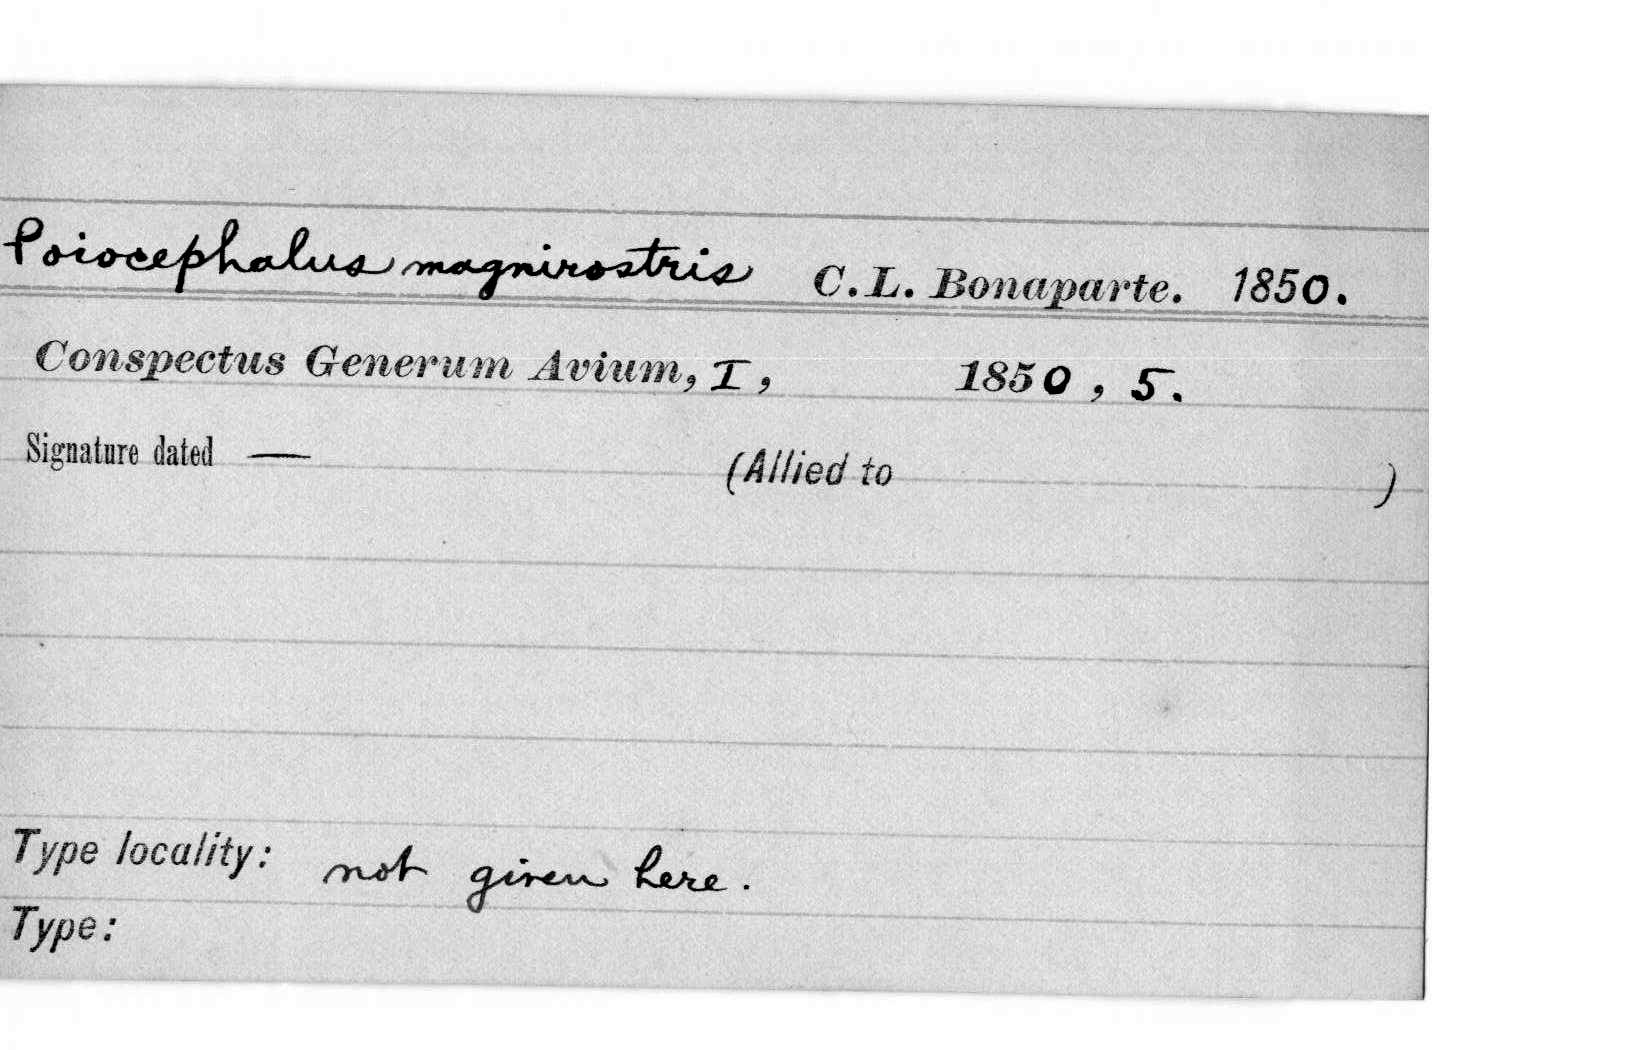 Poiocephalus magnirostris C. L. Bonaparte. 1850.
Conspectus Generum Avium, I, 1850, 5.
Signature dated — (Allied to )
Type locality: not given here.
Type: